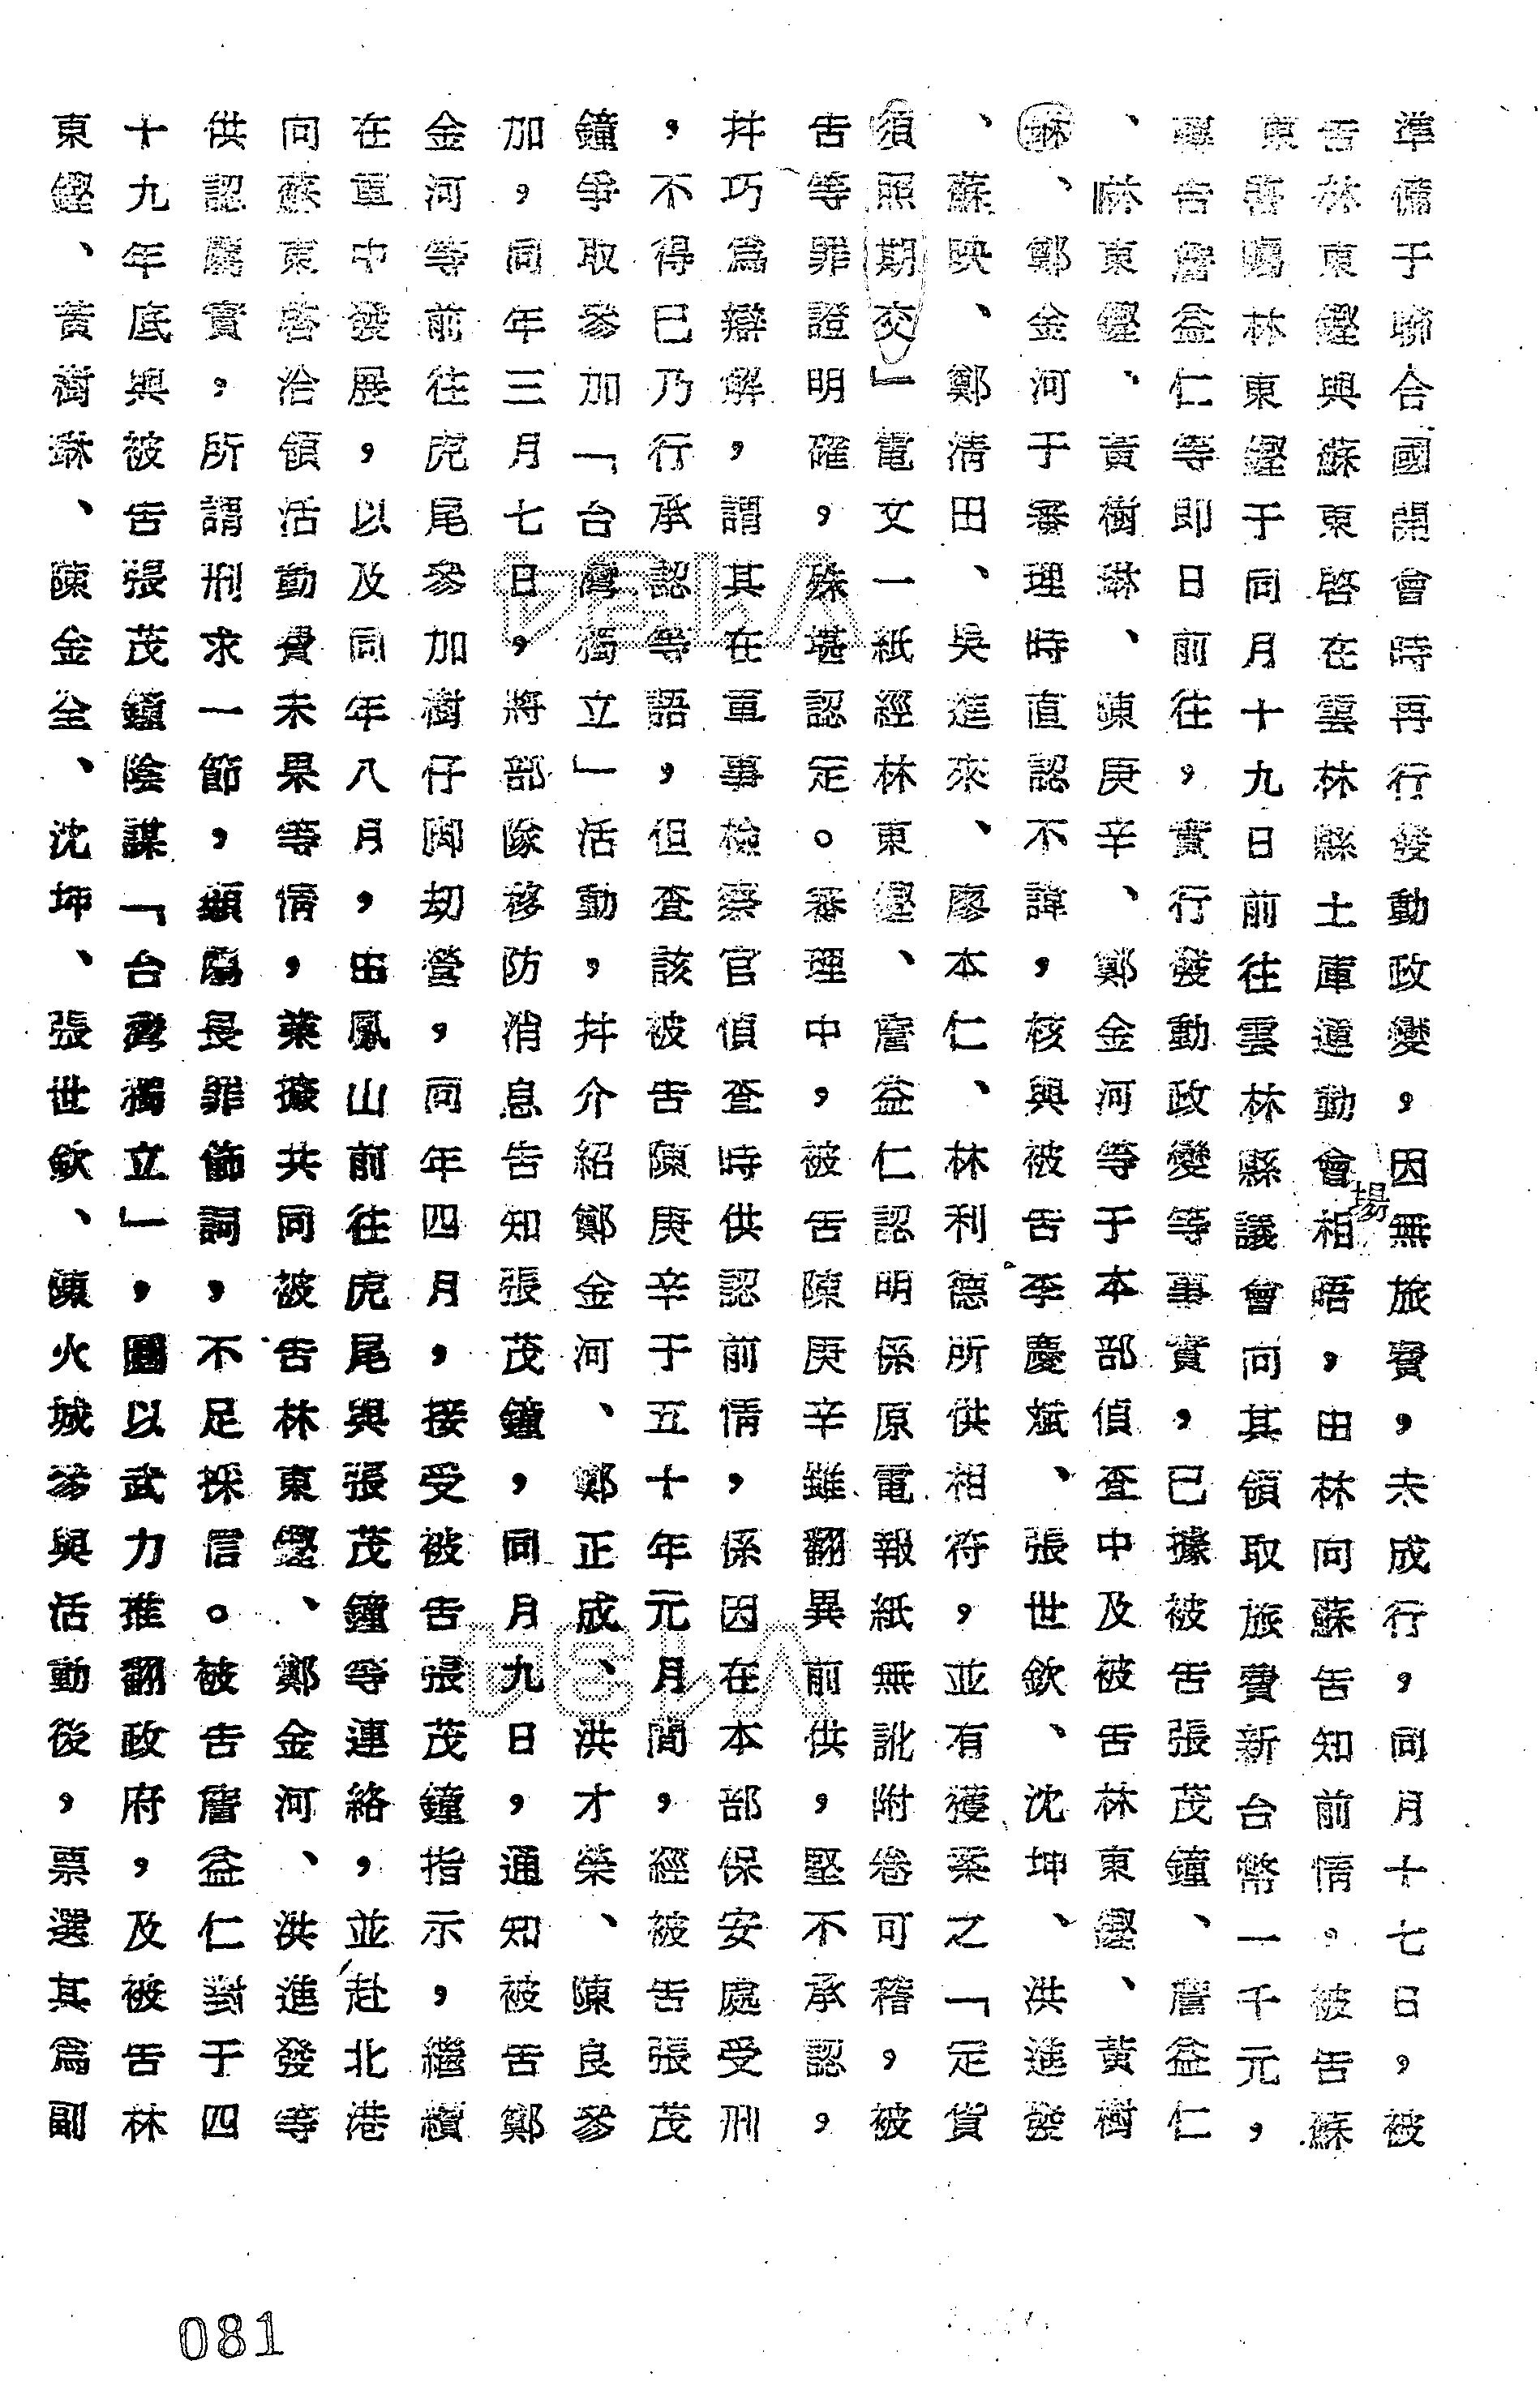 準備于聯合國開會時再行發動政變，因無旅費，未成行，同月十七日，被
告林東鏗與蘇東啓在雲林縣土庫運動會場相晤，由林向蘇告知前情。被告蘇
東啓囑林東鏗于同月十九日前往雲林縣議會向其領取旅費新台幣一千元，
詹益仁等即日前往，實行發動政變等事實，已據被告張茂鐘、詹益仁
、林東鏗、黃樹琳、陳庚辛、鄭金河等于本部偵查中及被告林東鏗、黃樹
琳、鄭金河于審理時直認不諱，核與被告李慶斌、張世欽、沈坤、洪進發
、蘇映、鄭清田、吳進來、廖本仁、林利德所供相符，並有獲案之「定貨
須照期交」電文一紙經林東鏗、詹益仁認明係原電報紙無訛附卷可稽，被
告等罪證明確，殊堪認定。審理中，被告陳庚辛雖翻異前供，堅不承認，
并巧為辯解，謂其在軍事檢察官偵查時供認前情，係因在本部保安處受刑
，不得已乃行承認等語，但查該被告陳庚辛于五十年元月間，經被告張茂
鐘爭取參加「台灣獨立」活動，并介紹鄭金河、鄭正成、洪才榮、陳良參
加，同年三月七日，將部隊移防消息告知張茂鐘，同月九日，通知被告鄭
金河等前往虎尾參加樹仔脚刼營，同年四月，接受被告張茂鐘指示，繼續
在軍中發展，以及同年八月，由鳳山前往虎尾與張茂鐘等連絡，並赴北港
向蘇東啓洽領活動費未果等情，業據共同被告林東鏗、鄭金河、洪進發等
供認屬實，所謂刑求一節，顯屬畏罪飾詞，不足採信。被告詹益仁對于四
十九年底與被告張茂鐘陰謀「台灣獨立」，圖以武力推翻政府，及被告林
東鏗、黃樹琳、陳金全、沈坤、張世欽、陳火城參與活動後，票選其為副
081